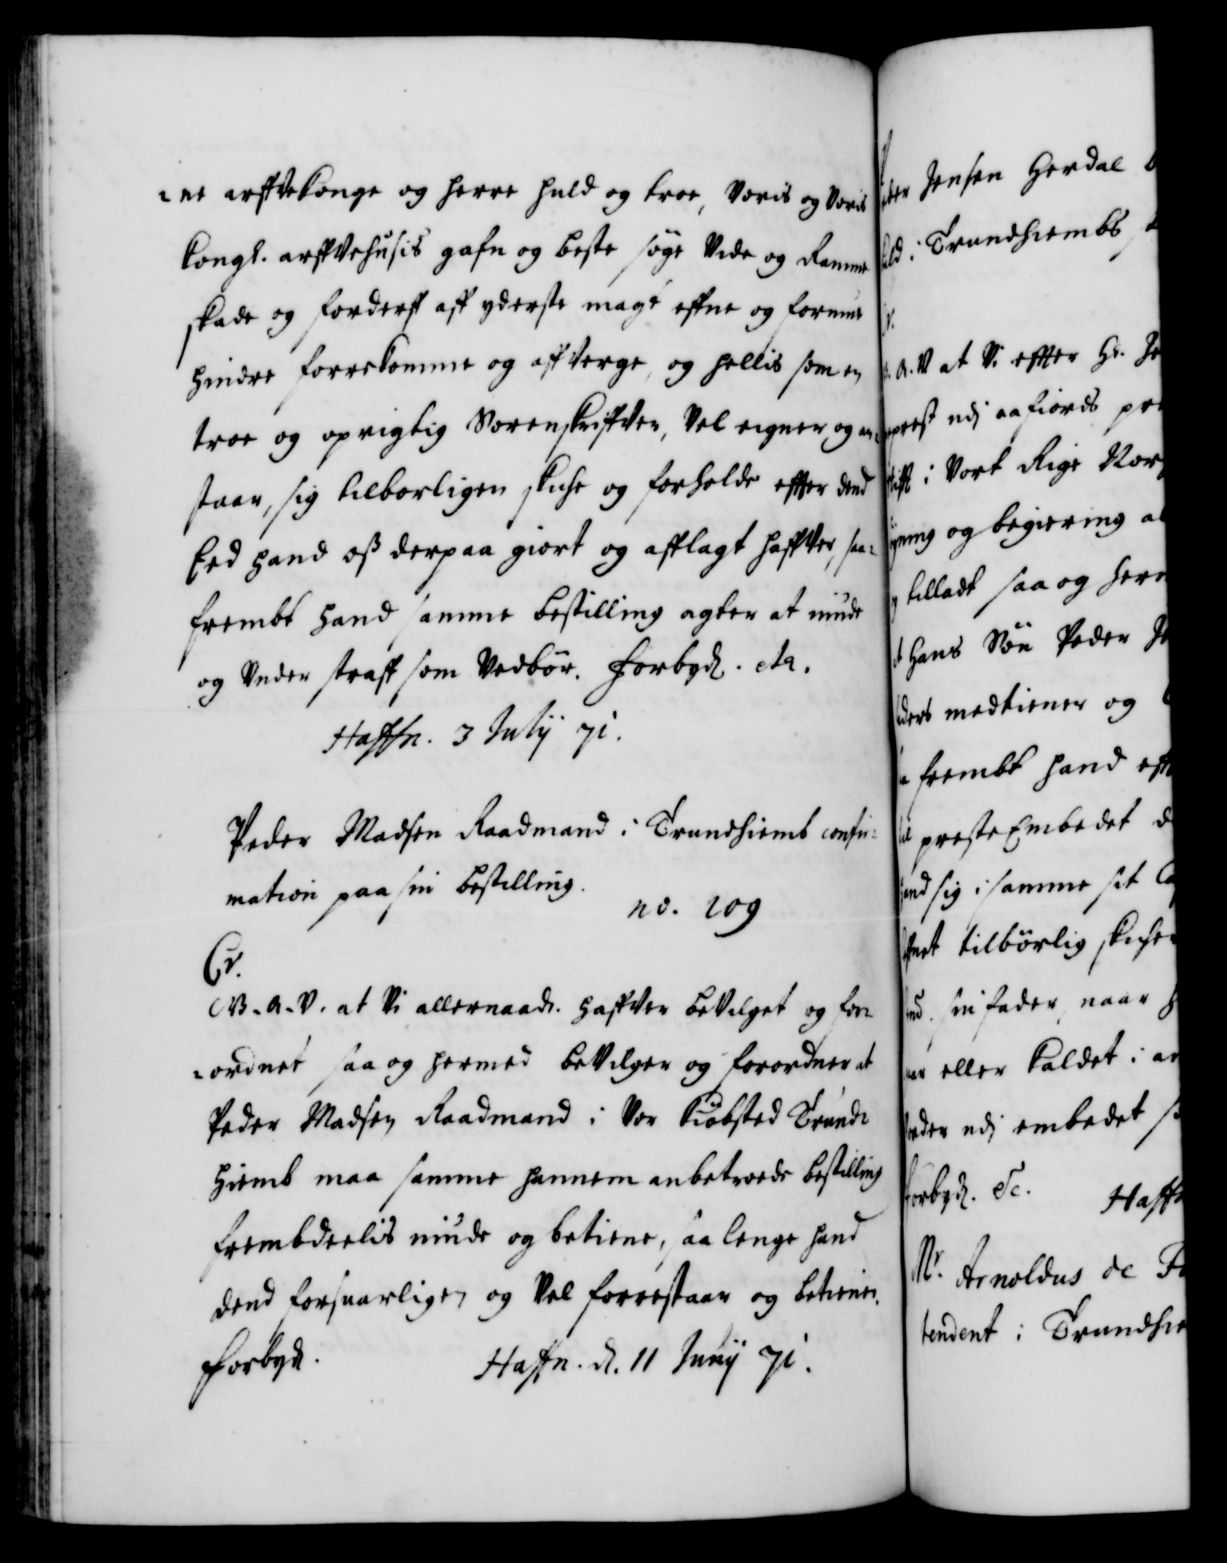 -ne arffvekonge og herre huld og troe, Voris og Voris
kongl. arffvehusis gafn og beste søge Vide og Ramme
skade og forderff aff yderste magt effne og formue
hindre forrekomme og affverge, og hellis som en
troe og oprigtig Sorenskriffver, Vel eigner og an-
staar, sig tilborligen skicke og forholde effter dend
Eed hand oß derpaa giort og afflagt haffver, saa-
frembt hand samme bestilling agter at niude
og Under straff som Vedbør. Forbyd. etc.
Haffn. 3 Julij 71.
Peder Madsen Raadmand i Trundhiemb confir-
mation paa sin bestilling.
no. 109
C5.
G. A. V. at Vi allernaad. haffver beVilget og for-
-ordnet saa og hermed beVilger og forordner at
Peder Madsen Raadmand i Vor kiøbsted Trund-
hiemb maa samme hannem anbetroede bestilling
frembdeelis niude og betiene, saa lenge hand
dend forsuarligen og Vel forrestaar og betiener.
Forbyd.
Haffn. d. 11 Junij 71.
Jensen Herdal
i Trundhiembs
A. V at Vi effter Hr.
udj aafiords
i Vort Rige Nor
og begiering
tilladt saa og her
Hans Søn Peder
medtiener og
frembt hand eff
preste Embedet
sig i samme sit
tilbørlig skicke
sin fader, naar
eller kaldet i
udj embedet
Forbyd. Etc. Haff
Mr. Arnoldus de
tendent i Trundhie